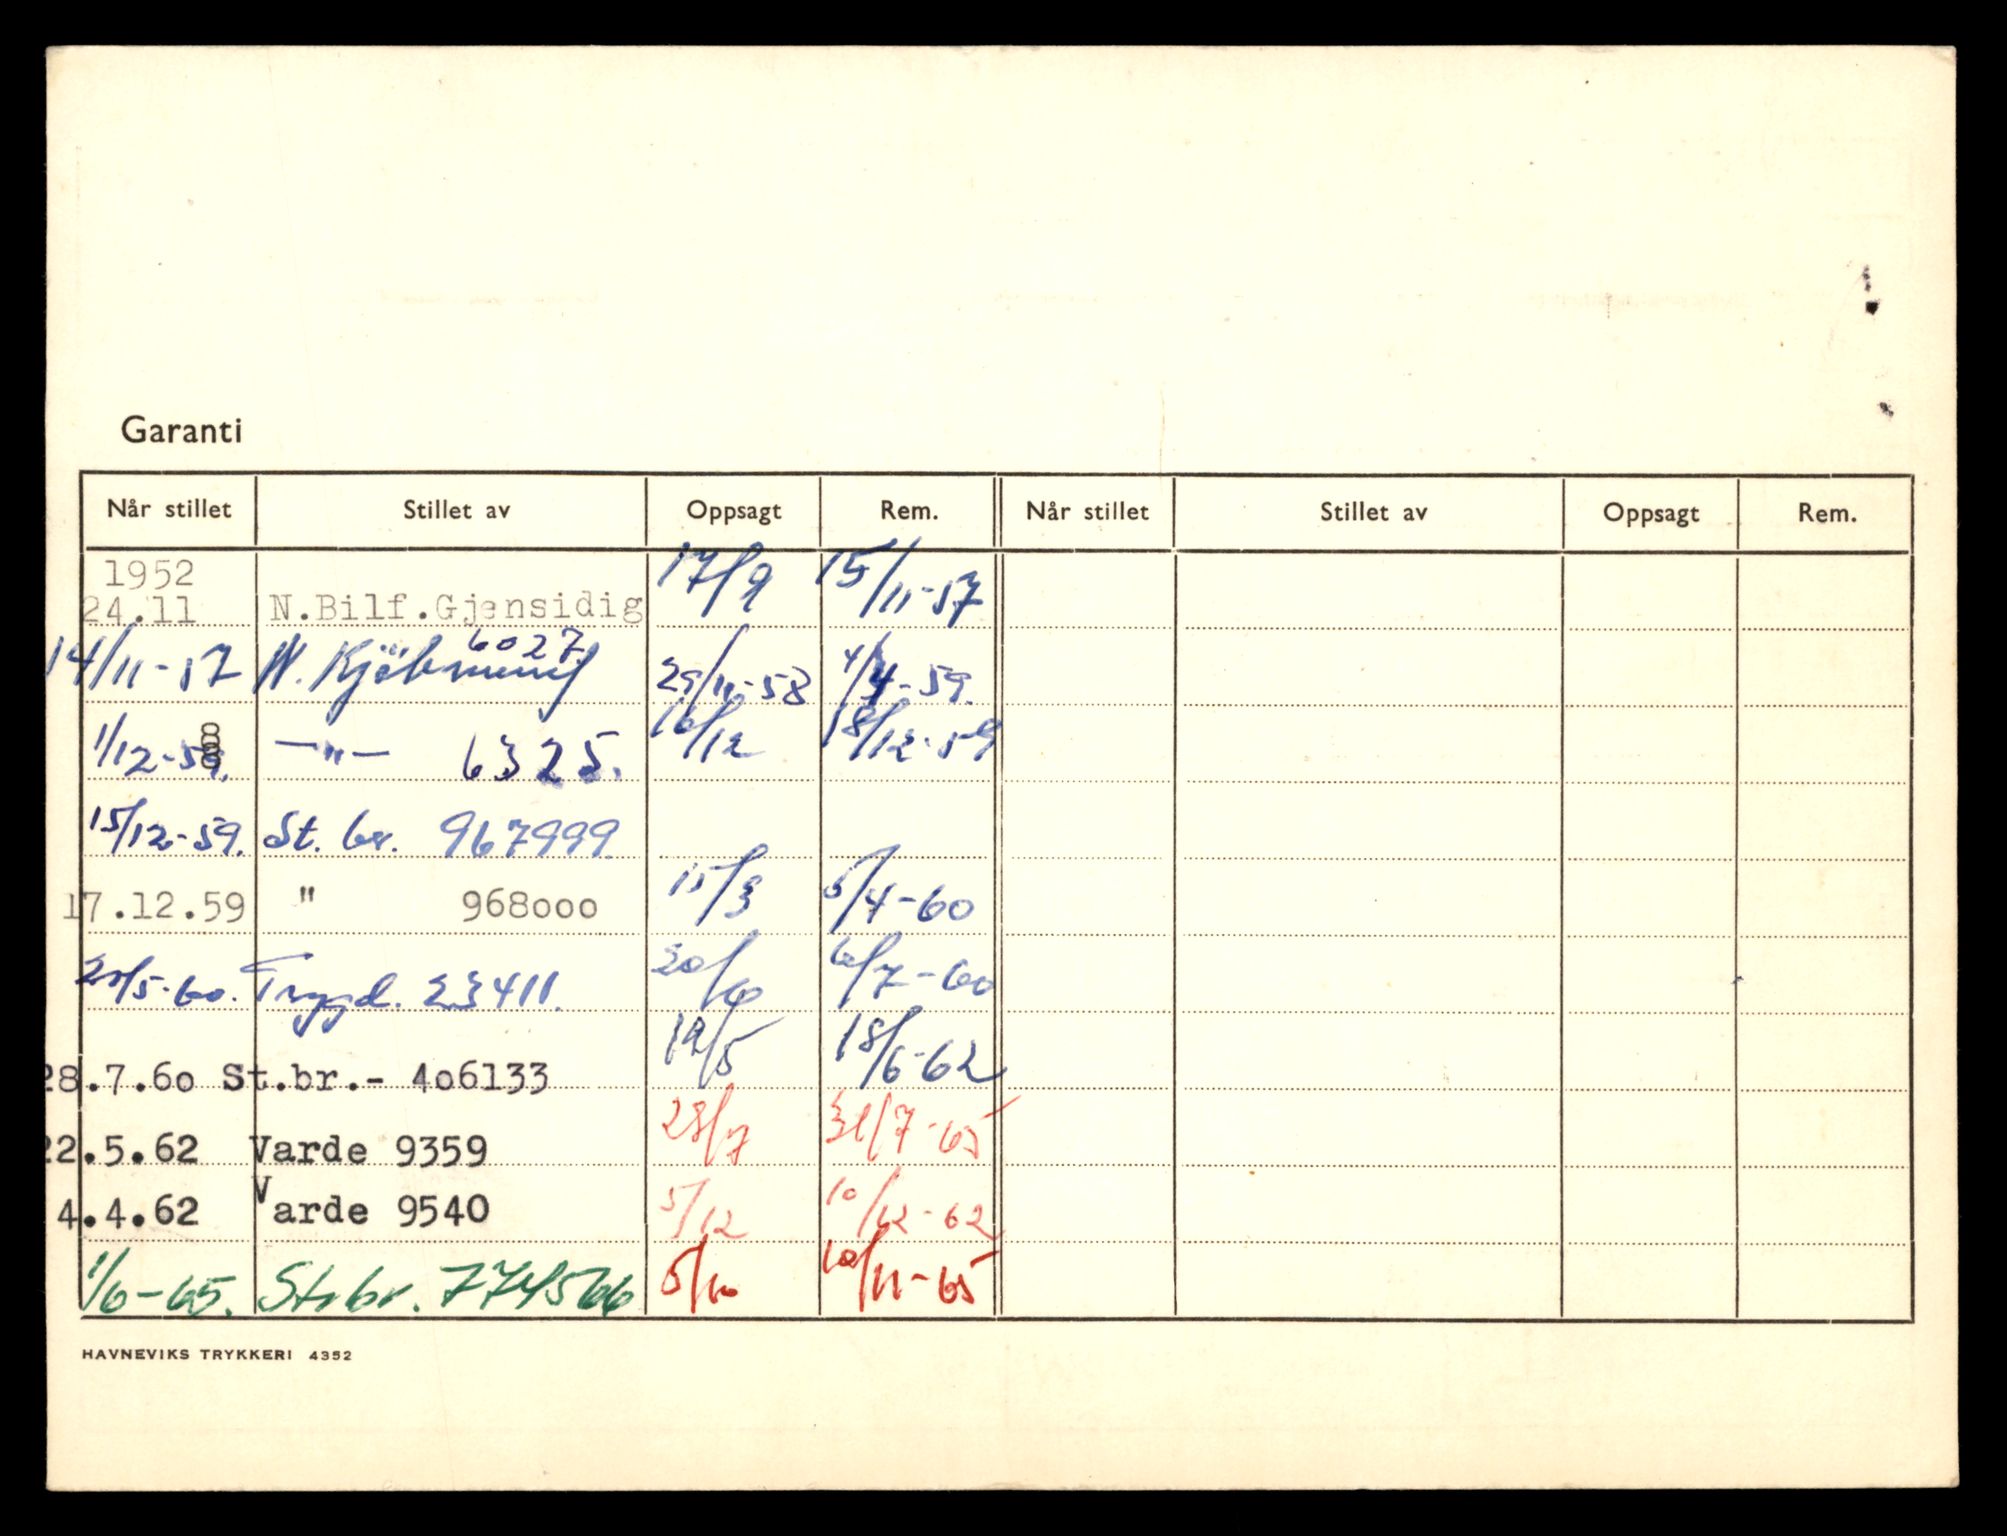 Garanti
Når stillet Stillet av Oppsagt Rem. Når stillet Stillet av Oppsagt Rem.
1952
24.11 N.Bilf.Gjensidig 17/9 15/11-57
6027.
14/11-57 N. Kjöbmenf 29/11-58 4/4-59.
1/12-58. —"— 6325. 16/12 18/12-59
15/12-59. St. br. 967999
17.12.59 " 968ooo 15/3 5/4-60
Trygd. 23411. 20/6 6/7-60
28.7.6o St.br.- 4o6133 19/5 18/6-62
22.5.62 Varde 9359 28/7 31/7-65
4.4.62 Varde 9540 5/12 10/12-62
1/6-65. St.br. 774566 5/10 10/11-65
HAVNEVIKS TRYKKERI 4352